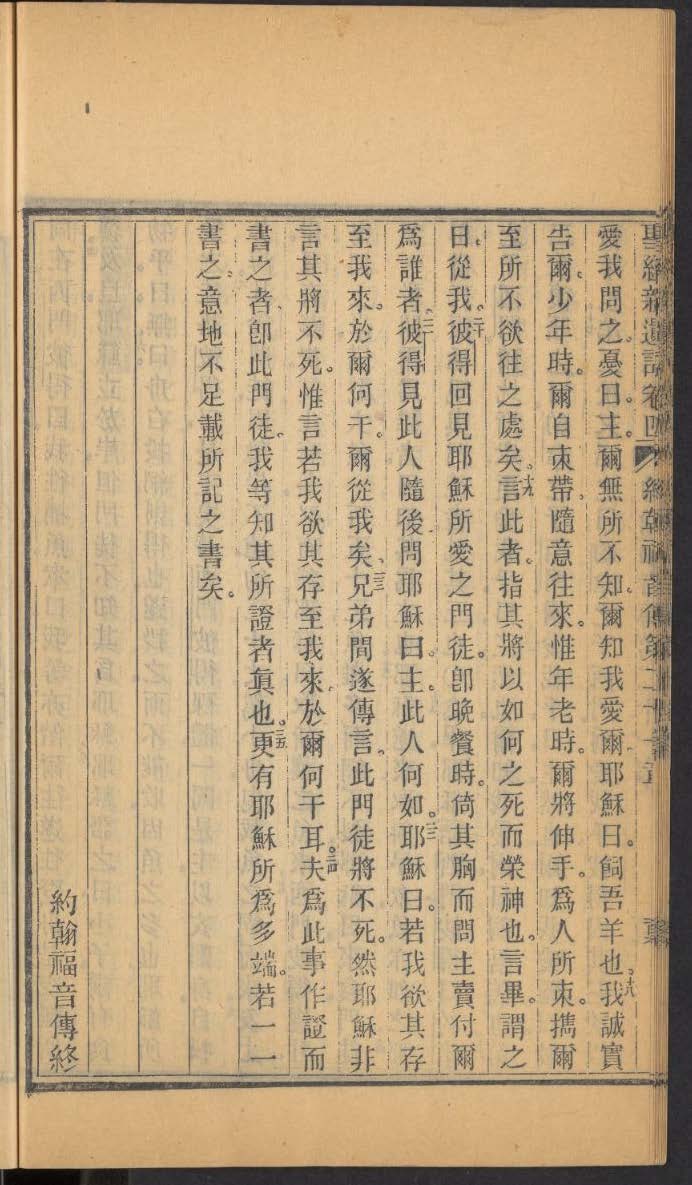 聖經新遺詔卷四 約翰福音傳第二十一章
愛我問之憂曰。主。爾無所不知。爾知我愛爾。耶穌曰。飼吾羊也。十八我誠實
告爾。少年時。爾自束帶。隨意往來。惟年老時。爾將伸手。爲人所束。攜爾
至所不欲往之處矣。十九言此者。指其將以如何之死而榮神也。言畢。謂之
曰。從我。二十彼得回見耶穌所愛之門徒。卽晚餐時。倚其胸而問主賣付爾
爲誰者。二一彼得見此人隨後問耶穌曰。主。此人何如。二二耶穌曰。若我欲其存
至我來。於爾何干。爾從我矣。二三兄弟間遂傳言。此門徒將不死。然耶穌非
言其將不死。惟言若我欲其存至我來。於爾何干耳。二四夫爲此事作證而
書之者。卽此門徒。我等知其所證者眞也。二五更有耶穌所爲多端。若一一
書之。意地不足載所記之書矣。
約翰福音傳終